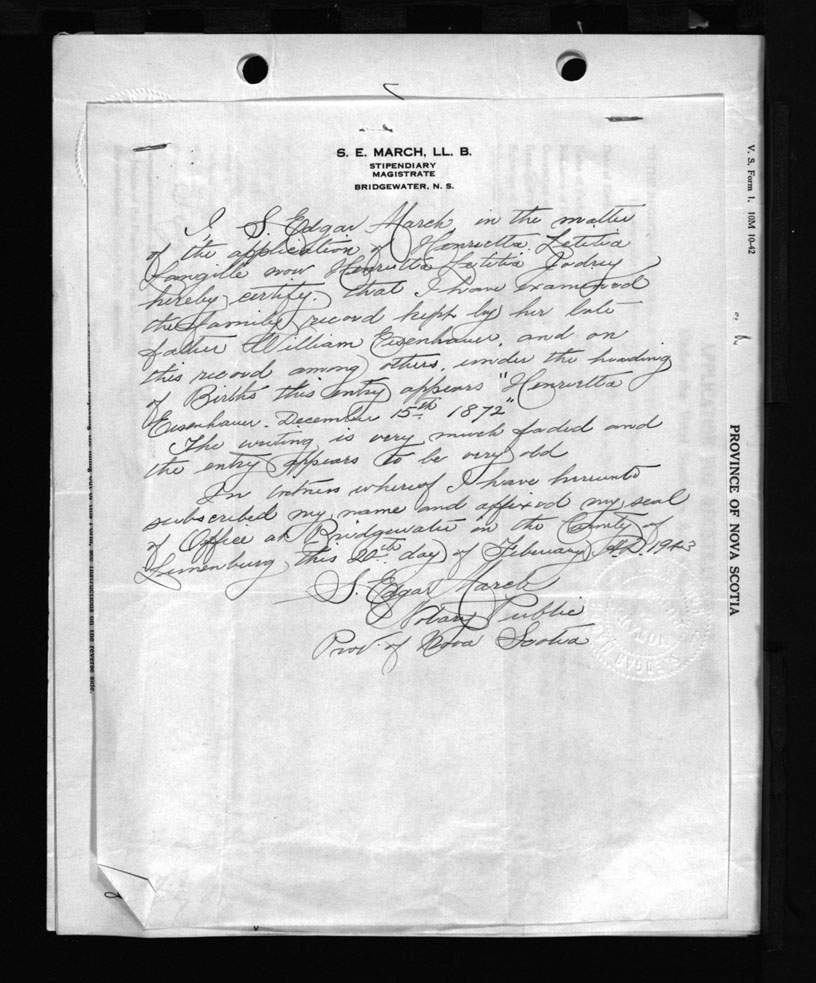 S. E. MARCH, LL. B.
STIPENDIARY
MAGISTRATE
BRIDGEWATER, N. S.
I S. Edgar March in the matter
of the application of Henrietta Letitia
Langille now Henrietta Letitia Godrey
hereby certify that I have examined
the family record kept by her late
father William Eisenhauer, and on
this record among others, under the heading
of Births this entry appears "Henrietta
Eisenhauer. December 15th 1872"
The writing is very much faded and
the entry appears to be very old
In witness whereof I have hereunto
subscribed my name and affixed my seal
of Office at Bridgewater in the County of
Lunenburg this 20th day of February A.D. 1943
S. Edgar March
Notary Public
Prov. of Nova Scotia
V. S. Form 1. 10M 10-42
PROVINCE OF NOVA SCOTIA